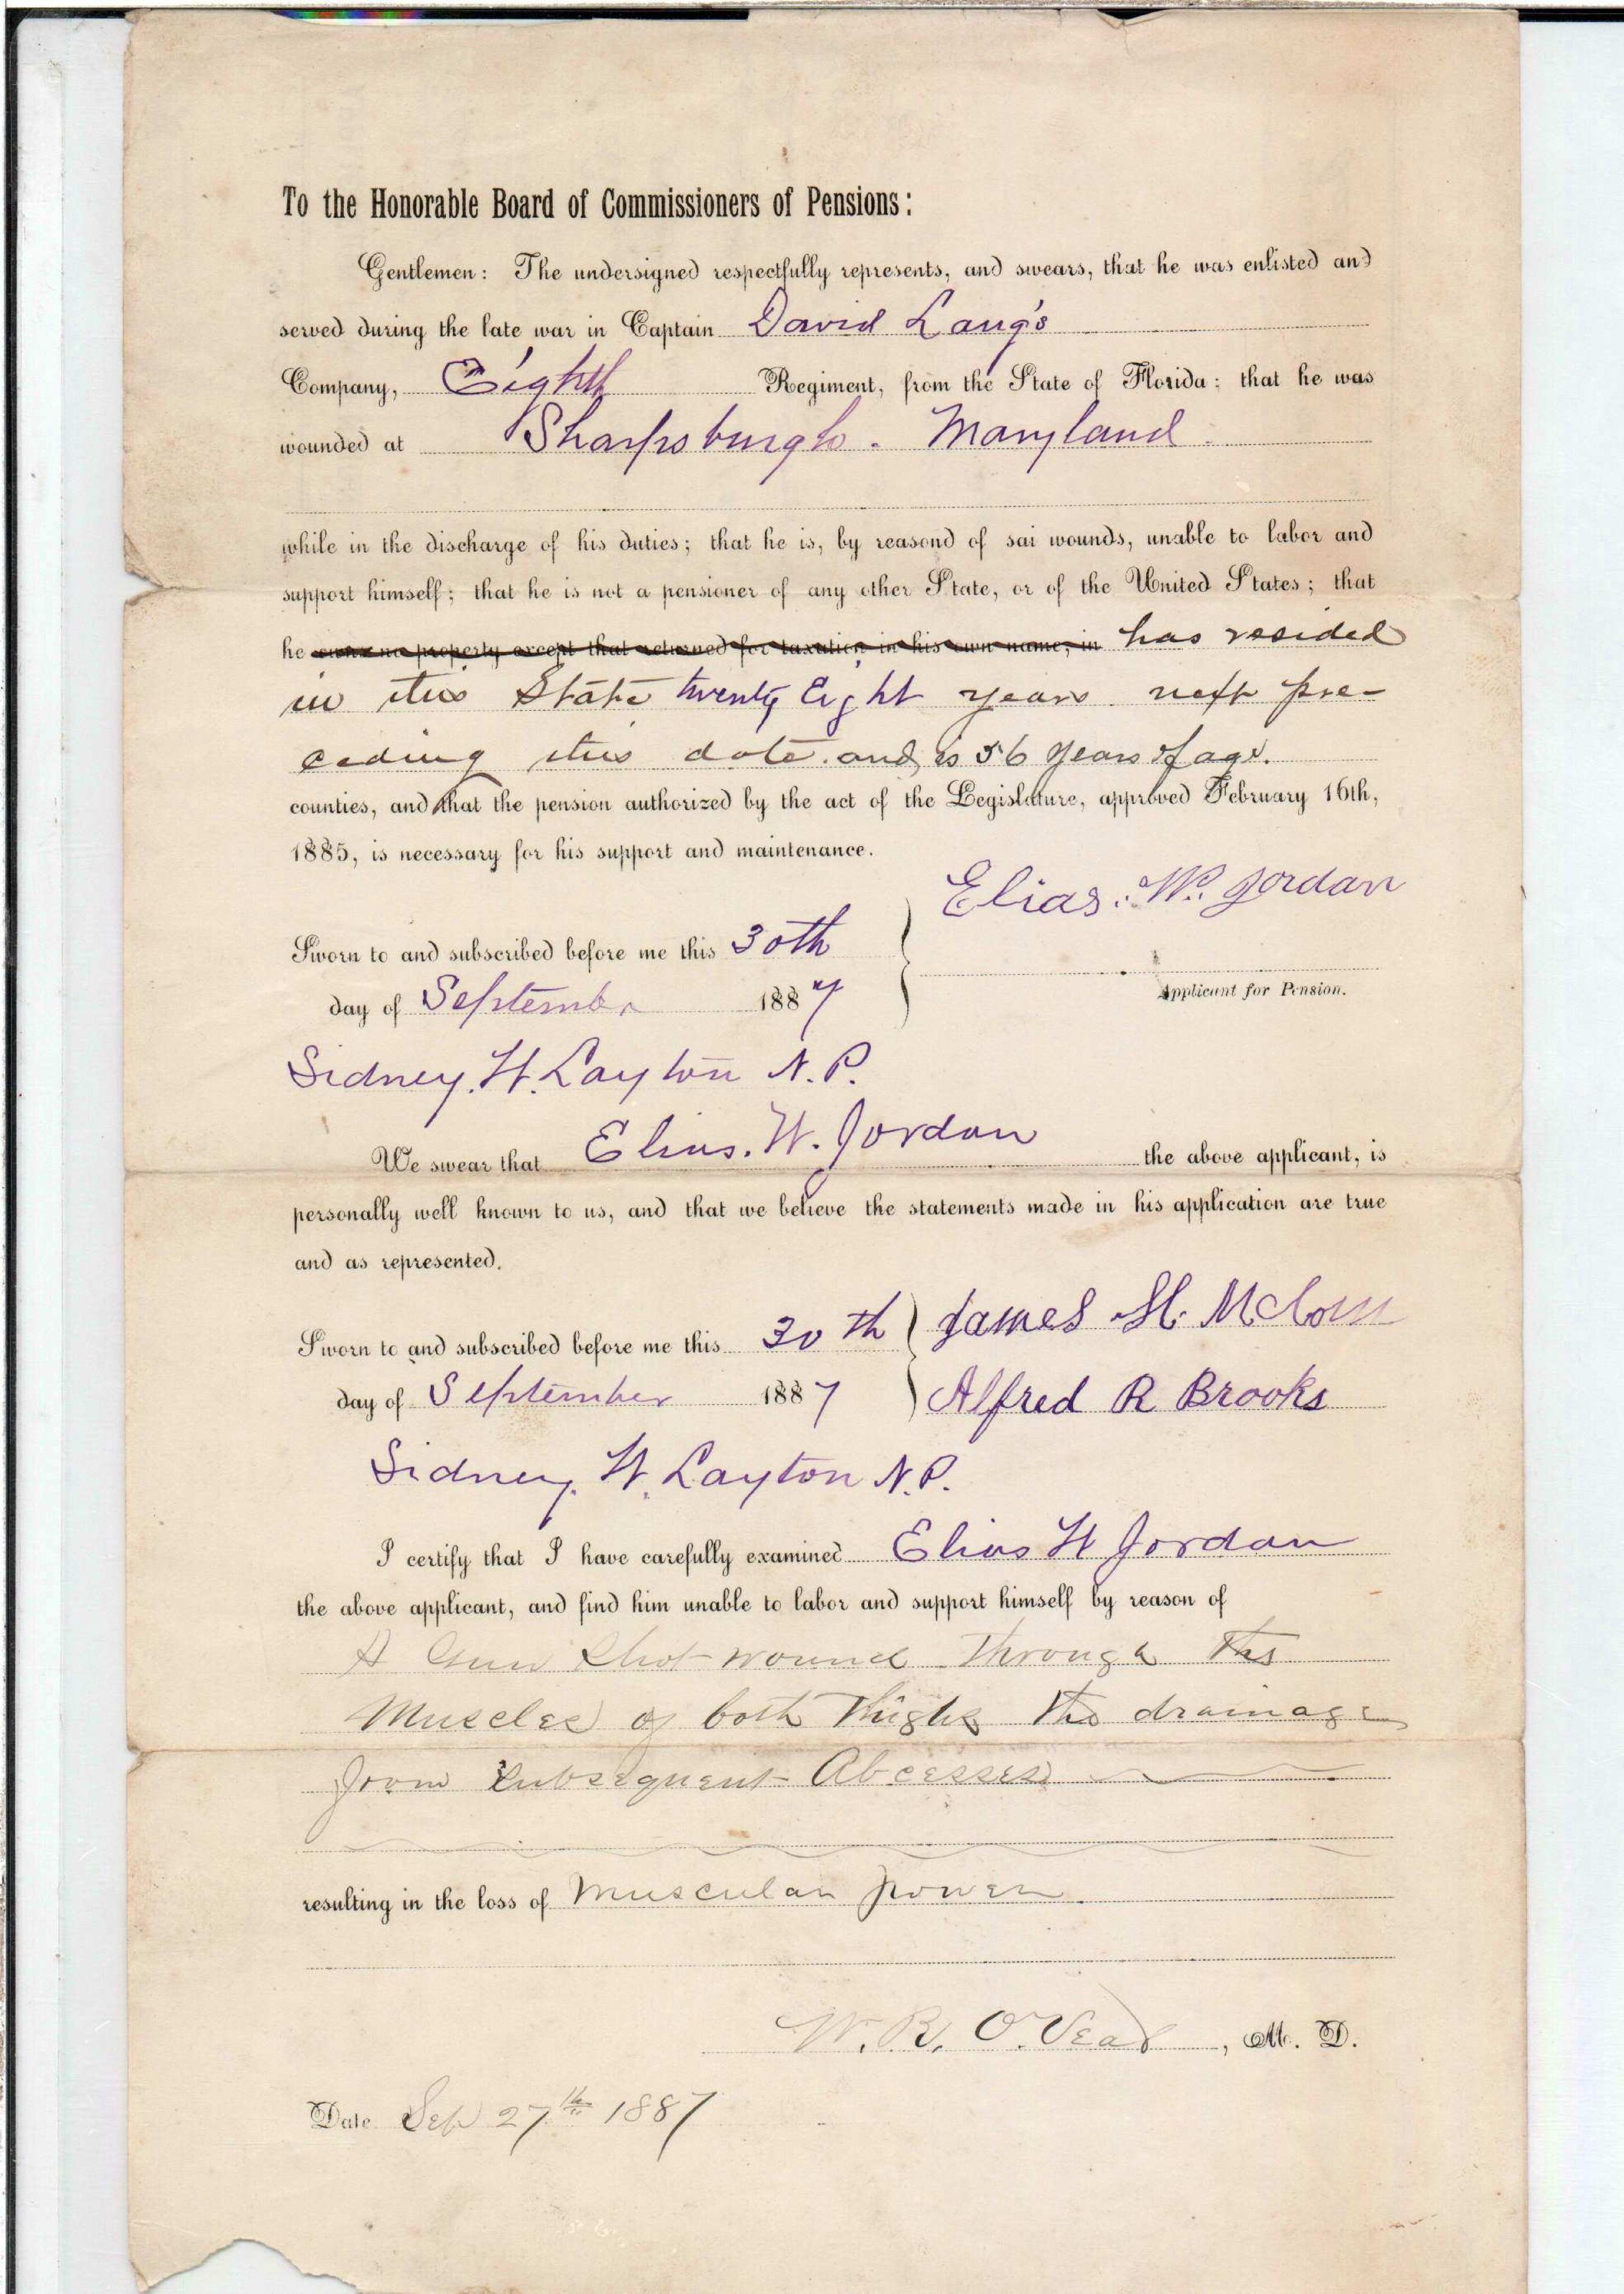 To the Honorable Board of Commissioners of Pensions:
Gentlemen: The undersigned respectfully represents, and swears, that he was enlisted and
served during the late war in Captain David Lang's
Company, Eighth Regiment, from the State of Florida; that he was
wounded at Sharpsburgh. Maryland.
while in the discharge of his duties; that he is, by reasond of sai wounds, unable to labor and
support himself; that he is not a pensioner of any other State, or of the United States; that
he owns no property except that returned for taxation in his own name, in has resided
in this State twenty Eight years next pre-
ceding this date. and is 56 years of age.
counties, and that the pension authorized by the act of the Legislature, approved February 16th,
1885, is necessary for his support and maintenance.
Elias. W. Jordan
Sworn to and subscribed before me this 30th
day of September 1887
Applicant for Pension.
Sidney. W. Layton N.P.
We swear that Elias. W. Jordan the above applicant, is
personally well known to us, and that we believe the statements made in his application are true
and as represented.
Sworn to and subscribed before me this 30th James H.
day of September 1887 Alfred R Brooks
Sidney. W. Layton N.P.
I certify that I have carefully examined Elias W Jordan
the above applicant, and find him unable to labor and support himself by reason of
A Gun Shot wound through the
Muscles of both thighs the drainage
from Subsequent Abcesses
resulting in the loss of Muscular power.
, M. D.
Date Sep 27th 1887